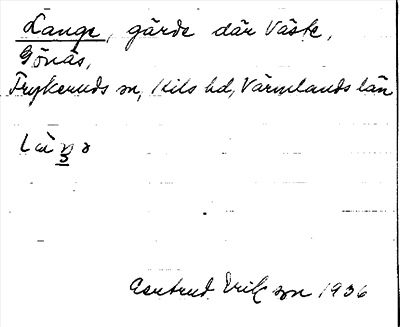 Lange, gärde där Väste,
Gönäs,
Frykeruds sn, Kils hd, Värmlands län
Gertrud Erikson 1936